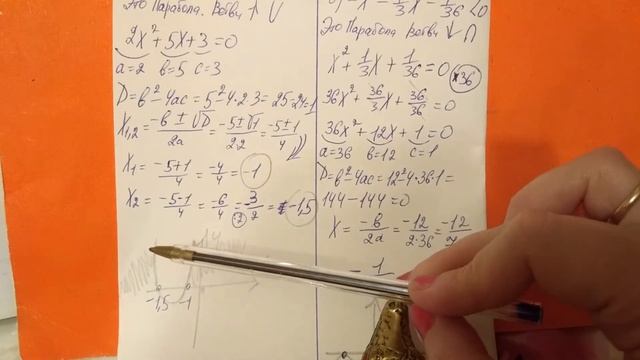 Это Парабола. Ветви ↑ U
2x² + 5x + 3 = 0
a=2 b=5 c=3
D=b²-4ac=5²-4·2·3=25-24=1
X₁,₂=(-b±√D)/2a=(-5±√1)/2·2=(-5±1)/4
X₁=(-5+1)/4=-4/4=-1
X₂=(-5-1)/4=-6/4=-3/2=-1,5
-1,5 -1
Это Парабола Ветви ↓ ∩
x²+1/3x+1/36=0 ×36
36x²+36/3x+36/36=0
36x²+12x+1=0
a=36 b=12 c=1
D=b²-4ac=12²-4·36·1=
144-144=0
X=-b/2a=-12/2·36=